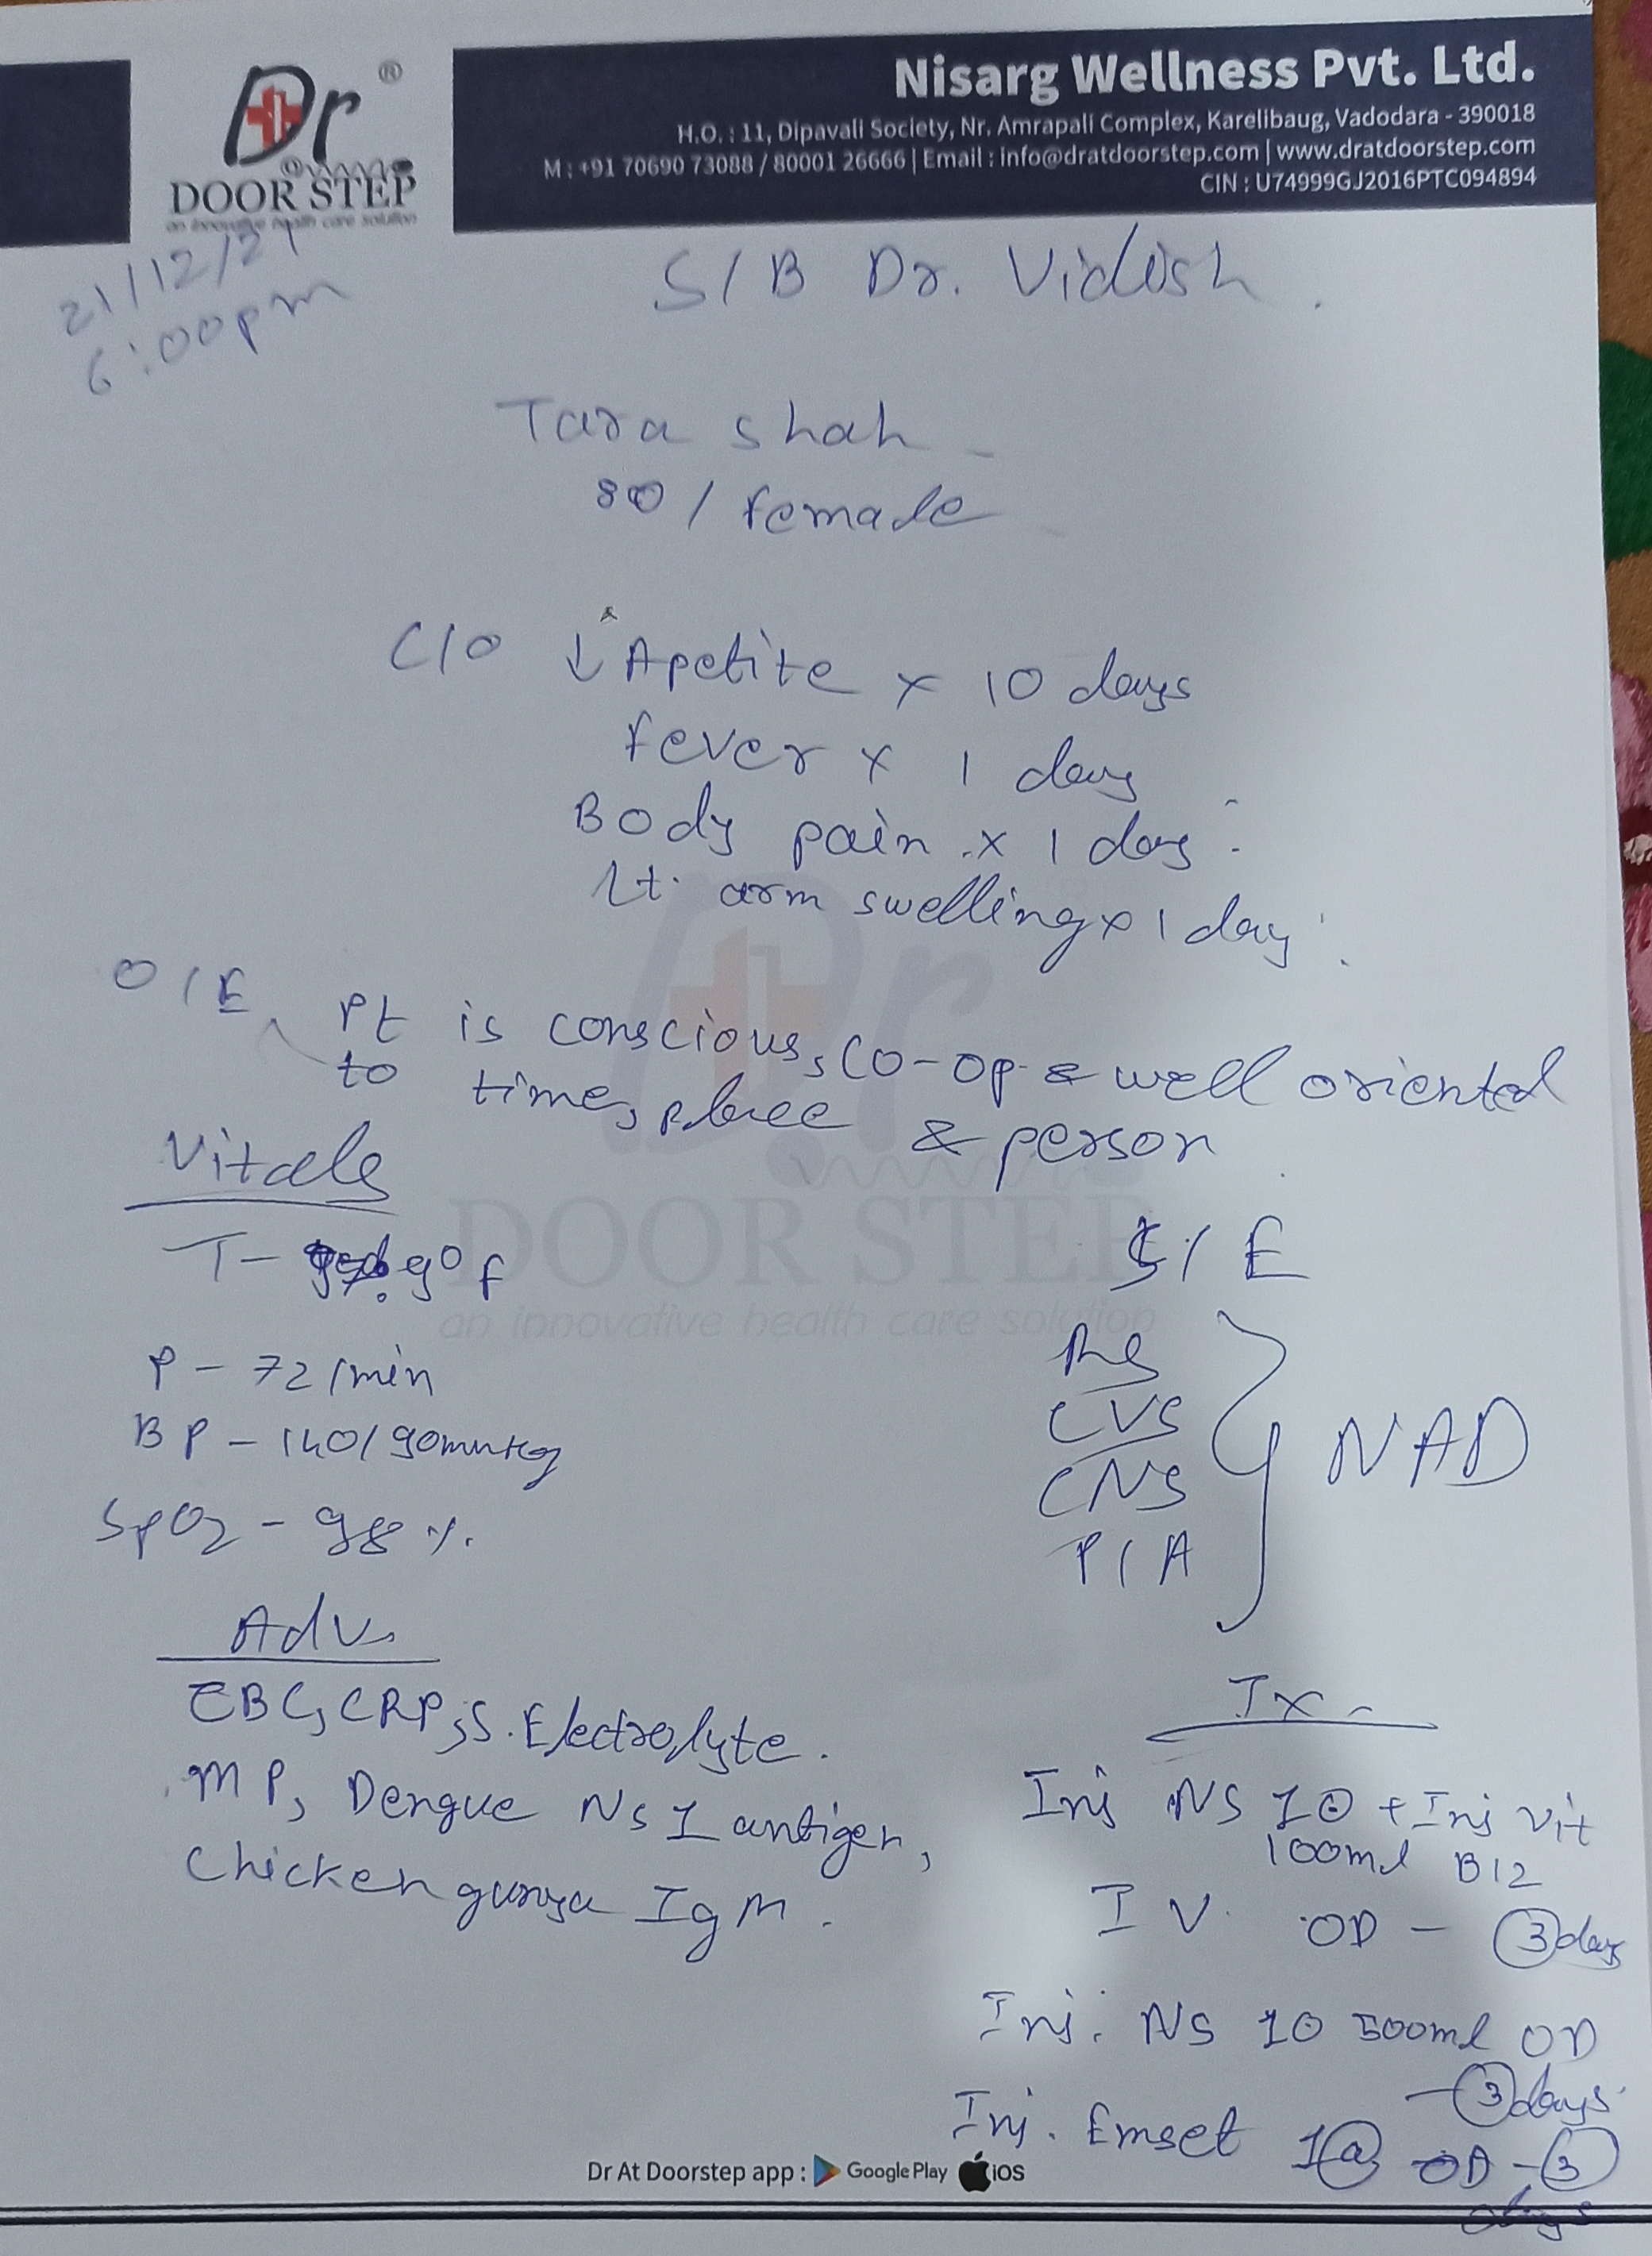 Dr ®
DOOR STEP
an innovative health care solution
Nisarg Wellness Pvt. Ltd.
H.O. : 11, Dipavali Society, Nr. Amrapali Complex, Karelibaug, Vadodara - 390018
M : +91 70690 73088 / 80001 26666 | Email : info@dratdoorstep.com | www.dratdoorstep.com
CIN : U74999GJ2016PTC094894
21/12/21
6:00pm
S/B Dr. Vidish.
Tara shah
80 / female
C/O ↓ Apetite x 10 days
fever x 1 day
Body pain x 1 day.
Lt. arm swelling x 1 day.
O/E Pt is conscious, co-op & well oriented
to time, place & person
Vitals
T- .9° f
P - 72/min
BP - 140/90mmHg
SpO2 - 98 %.
S/E
RS
CVS
CNS
P/A
NAD
Adv.
CBC, CRP, S. Electrolyte.
MP, Dengue NS1 antigen,
Chickengunya IgM.
Tx -
Inj NS 10 + Inj Vit
100ml B12
IV. OD - 3 days
Inj. NS 10 500ml OD
- 3 days.
Inj. Emset 1a OD - 3
days
Dr
DOOR STEP
an innovative health care solution
Dr At Doorstep app : Google Play iOS